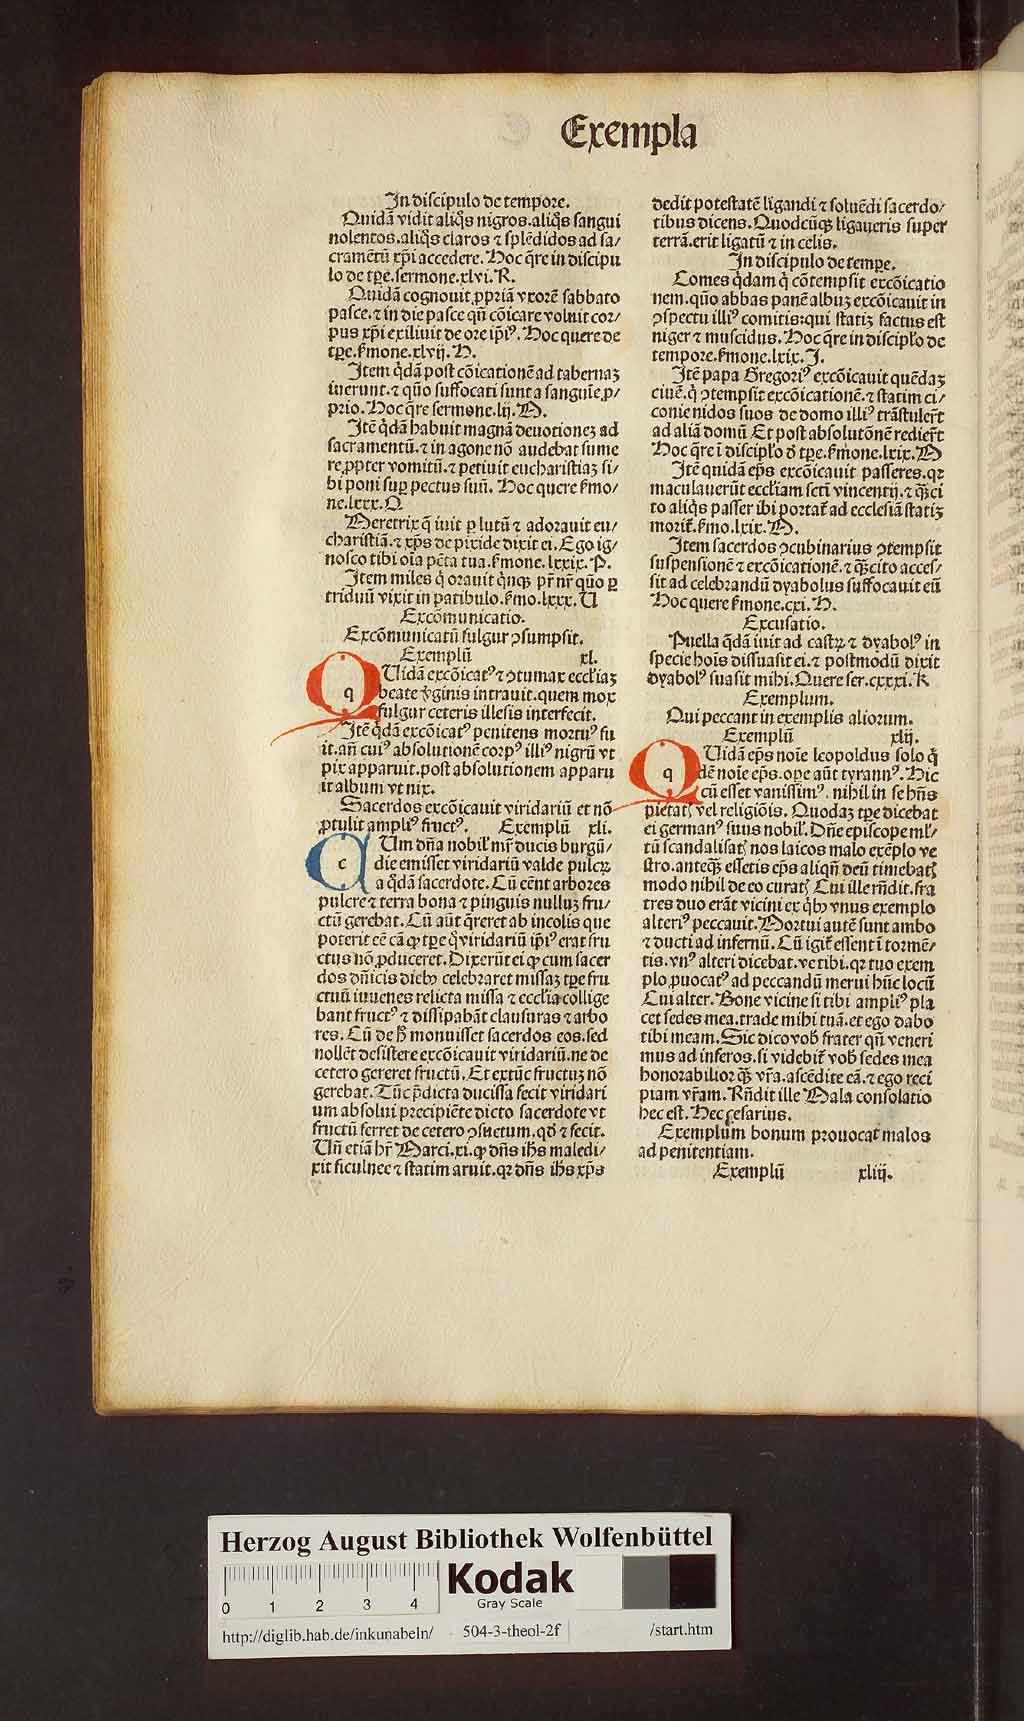 Exempla
In discipulo de tempore.
Quidã vidit aliq̃s nigros.aliq̃s sangui
nolentos.aliq̃s claros ⁊ splẽdidos ad sa/
cramẽtũ xp̃i accedere. Hoc q̃re in discipu
lo de tp̃e.sermone.xlvi.R.
Quidã cognouit ꝓpriã vxorẽ sabbato
pasce.⁊ in die pasce qñ cõicare voluit cor/
pus xp̃i exiliuit de ore ip̃iꝰ. Hoc quere de
tp̃e.ẜmone.xlvij.H.
Item q̃dã post cõicationẽ ad tabernaꝫ
iuerunt.⁊ quõ suffocati sunt a sanguīe ꝓ/
prio. Hoc q̃re sermone.lij.N.
Itẽ q̃dã habuit magnã deuotioneꝫ ad
sacramentũ.⁊ in agone nõ audebat sume
re ꝓpter vomitũ.⁊ petiuit eucharistiaꝫ si/
bi poni suꝑ pectus suũ. Hoc quere ẜmo/
ne.lxxx.O
Meretrix q̃ iuit ꝑ lutũ ⁊ adorauit eu/
charistiã.⁊ xp̃s de pixide dixit ei. Ego ig/
nosco tibi oĩa pctã tua.ẜmone.lxxix.P.
Item miles q̃ orauit q̃nqꝫ pr̃ nr̃ quõ ꝑ
triduũ vixit in patibulo.ẜmo.lxxx.U
Excõmunicatio.
Excõmunicatũ fulgur ↄsumpsit.
Exemplũ xl.
q Uidã excõicatꝰ ⁊ ↄtumax eccĺiaꝫ
beate v̓ginis intrauit.quem mox
fulgur ceteris illesis interfecit.
Itẽ q̃dã excõicatꝰ penitens mortuꝰ fu
it.añ cuiꝰ absolutionẽ corpꝰ illiꝰ nigrũ vt
pix apparuit.post absolutionem apparu
it album vt nix.
Sacerdos excõicauit viridariũ et nõ
ꝓtulit ampliꝰ fructꝰ. Exemplũ xli.
c Um dña nobiĺ mr̃ ducis burgũ/
die emisset viridariũ valde pulcꝝ
a q̃dã sacerdote. Cũ cẽnt arbores
pulcre ⁊ terra bona ⁊ pinguis nulluꝫ fru/
ctũ gerebat. Cũ aũt q̃reret ab incolis que
poterit eẽ cã ꝙ tp̃e q̃ viridariũ ip̃iꝰ erat fru
ctus nõ ꝓduceret. Dixerũt ei ꝙ cum sacer
dos dñicis diebꝫ celebraret missaꝫ tp̃e fru
ctuũ iuuenes relicta missa ⁊ eccĺia collige
bant fructꝰ ⁊ dissipabãt clausuras ⁊ arbo
res. Cũ de h̃ monuisset sacerdos eos.sed
nollẽt desistere excõicauit viridariũ.ne de
cetero gereret fructũ. Et extũc fructuꝫ nõ
gerebat. Tũc p̃dicta ducissa fecit viridari
um absolui precipiẽte dicto sacerdote vt
fructũ ferret de cetero ↄsuetum.qd̓ ⁊ fecit.
Uñ etiã hr̃ Marci.xi.ꝙ dñs ihs̃ maledi/
xit ficulnee ⁊ statim aruit.qꝛ dñs ihs̃ xp̃s
dedit potestatẽ ligandi ⁊ soluẽdi sacerdo/
tibus dicens. Quodcũqꝫ ligaueris super
terrã.erit ligatũ ⁊ in celis.
In discipulo de tempe.
Comes q̃dam q̃ cõtempsit excõicatio
nem.quõ abbas panẽ albuꝫ excõicauit in
ↄspectu illiꝰ comitis:qui statiꝫ factus est
niger ⁊ muscidus. Hoc q̃re in discipĺo de
tempore.ẜmone.lxix.I.
Itẽ papa Gregoriꝰ excõicauit quẽdaꝫ
ciuẽ.q̃ ↄtempsit excõicationẽ.⁊ statim ci/
conie nidos suos de domo illiꝰ trãstuler̃t
ad aliã domũ Et post absolutõnẽ redier̃t
Hoc q̃re ĩ discipĺo d̓ tp̃e.ẜmone.lxix.M
Itẽ quidã ep̃s excõicauit passeres.qꝛ
maculauerũt eccĺiam scti vincentij.⁊ qꝫci
to aliq̃s passer ibi portat̃ ad ecclesiã statiꝫ
morit̃.ẜmo.lxix.N.
Item sacerdos ↄcubinarius ↄtempsit
suspensionẽ ⁊ excõicationẽ.⁊ qꝫcito acces/
sit ad celebrandũ dyabolus suffocauit eũ
Hoc quere ẜmone.cxi.H.
Excusatio.
Puella q̃dã iuit ad castꝝ ⁊ dyabolꝰ in
specie hoĩs dissuasit ei.⁊ postmodũ dixit
dyabolꝰ suasit mihi. Quere ser.cxxxi.K
Exemplum.
Qui peccant in exemplis aliorum.
Exemplũ xlij.
q Uidã ep̃s noĩe leopoldus solo q̃
dẽ noĩe ep̃s.oꝑe aũt tyrannꝰ. Hic
cũ esset vanissimꝰ. nihil in se hñs
pietatꝭ vel religiõis. Quodaꝫ tp̃e dicebat
ei germanꝰ suus nobiĺ. Dñe episcope mĺ/
tũ scandalisatꝭ nos laicos malo exẽplo ve
stro.anteqꝫ essetis ep̃s aliqñ deũ timebatꝭ
modo nihil de eo curatꝭ Cui ille rñdit.fra
tres duo erãt vicini ex q̃bꝫ vnus exemplo
alteriꝰ peccauit. Mortui autẽ sunt ambo
⁊ ducti ad infernũ. Cũ igit̃ essent ĩ tormẽ/
tis.vnꝰ alteri dicebat.ve tibi.qꝛ tuo exem
plo ꝓuocatꝰ ad peccandũ merui hũc locũ
Cui alter. Bone vicine si tibi ampliꝰ pla
cet sedes mea.trade mihi tuã.et ego dabo
tibi meam. Sic dico vob̃ frater qñ veneri
mus ad inferos.si videbit̃ vob̃ sedes mea
honorabilior qꝫ vr̃a.ascẽdite eã.⁊ ego reci
piam vr̃am. Rñdit ille Mala consolatio
hec est. Hec cesarius.
Exemplum bonum prouocat malos
ad penitentiam.
Exemplũ xliij.
Herzog August Bibliothek Wolfenbüttel
Kodak
Gray Scale
0 1 2 3 4
http://diglib.hab.de/inkunabeln/ 504-3-theol-2f /start.htm